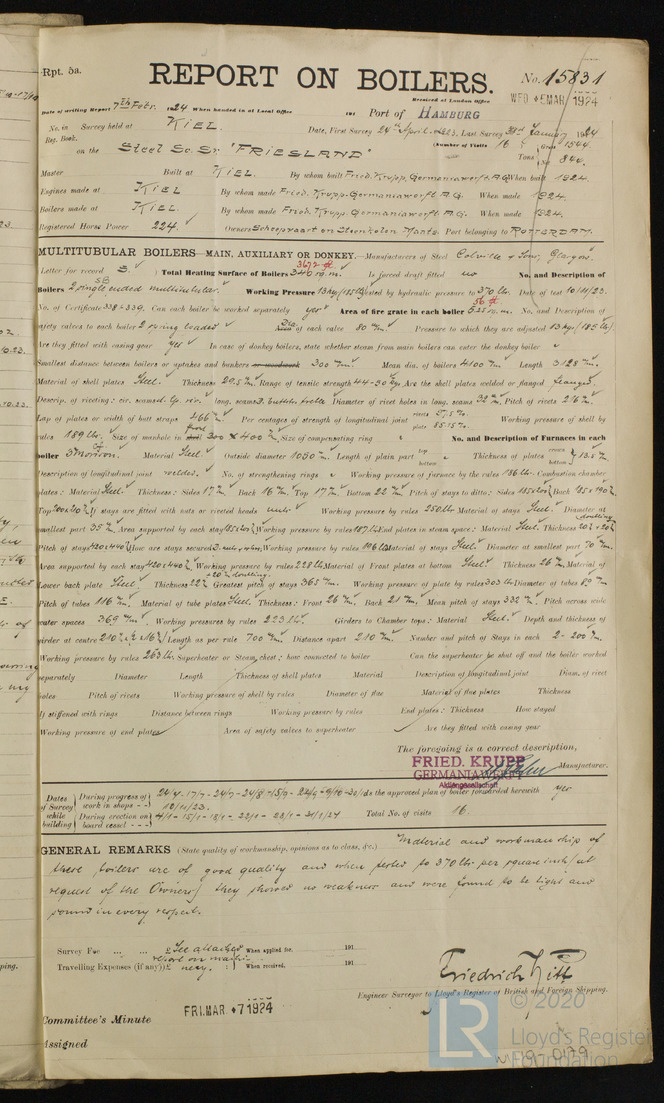 Rpt. 5a.
REPORT ON BOILERS.
No. 15831
Received at London Office
WED MAR 1924
Date of writing Report 7th Febr. 1924 When handed in at Local Office 191 Port of HAMBURG
No. in Survey held at KIEL. Date, First Survey 24th April 1923, Last Survey 31st January 1924
Reg. Book. (Number of Visits 16) Gross 1544
on the Steel Sc. Sr "FRIESLAND" Tons Net 844.
Master Built at KIEL. By whom built Fried. Krupp, Germaniawerft A.G. When built 1924.
Engines made at KIEL By whom made Fried. Krupp-Germaniawerft A.G. When made 1924.
Boilers made at KIEL. By whom made Fried. Krupp Germaniawerft A.G. When made 1924.
Registered Horse Power 224. Owners Scheepvaart en Steenkolen Maats. Port belonging to ROTTERDAM.
MULTITUBULAR BOILERS—MAIN, AUXILIARY OR DONKEY.—Manufacturers of Steel Colville & Sons, Glasgow.
Letter for record S. Total Heating Surface of Boilers 3672 ft 340 sq. m. Is forced draft fitted no No. and Description of
Boilers 2 single ended multitubular. SB Working Pressure 13 kg (185 lb) Tested by hydraulic pressure to 370 lbs. Date of test 10/11/23.
No. of Certificate 338 & 339. Can each boiler be worked separately yes Area of fire grate in each boiler 56 ft 5.25 sq. m. No. and Description of
safety valves to each boiler 2 spring loaded Area of each valve 80 m/m. Pressure to which they are adjusted 13 kg. (185 lb.)
Are they fitted with easing gear yes In case of donkey boilers, state whether steam from main boilers can enter the donkey boiler
Smallest distance between boilers or uptakes and bunkers or woodwork 300 m/m. Mean dia. of boilers 4100 m/m. Length 3125 m/m.
Material of shell plates Steel. Thickness 29.5 m/m. Range of tensile strength 44-50 kg. Are the shell plates welded or flanged flanged.
Descrip. of riveting: cir. seams d. lp. riv. long. seams d. butt str. treble Diameter of rivet holes in long. seams 32 m/m. Pitch of rivets 216 m/m.
Lap of plates or width of butt straps 466 m/m. Per centages of strength of longitudinal joint rivets 87.5 %. plate 85.15 %. Working pressure of shell by
rules 189 lbs. Size of manhole in shell front 300 × 400 m/m. Size of compensating ring No. and Description of Furnaces in each
boiler 3 Morison. Material Steel Outside diameter 1050 m/m. Length of plain part top bottom Thickness of plates crown bottom 13.5 m/m
Description of longitudinal joint welded. No. of strengthening rings Working pressure of furnace by the rules 186 lbs. Combustion chamber
plates: Material Steel. Thickness: Sides 17 m/m. Back 16 m/m. Top 17 m/m. Bottom 22 m/m. Pitch of stays to ditto: Sides Back
Top If stays are fitted with nuts or riveted heads nuts Working pressure by rules 250 lbs. Material of stays Steel. Diameter at
smallest part 35 m/m. Area supported by each stay Working pressure by rules 187 lb. End plates in steam space: Material Steel. Thickness
Pitch of stays 420x440 How are stays secured Working pressure by rules 196 lb. Material of stays Steel. Diameter at smallest part 70 m/m.
Area supported by each stay 420x440 Working pressure by rules 228 lb. Material of Front plates at bottom Steel. Thickness 26 m/m. Material of
Lower back plate Steel Thickness 22 + 20 doubling. Greatest pitch of stays 365 m/m. Working pressure of plate by rules 303 lbs. Diameter of tubes 83 m/m.
Pitch of tubes 116 m/m. Material of tube plates Steel. Thickness: Front 26 m/m. Back 21 m/m. Mean pitch of stays 332 m/m. Pitch across wide
water spaces 369 m/m. Working pressures by rules 223 lb. Girders to Chamber tops: Material Steel. Depth and thickness of
girder at centre 210 Length as per rule 700 m/m. Distance apart 210 m/m. Number and pitch of Stays in each 2 - 200 m/m.
Working pressure by rules 263 lbs. Superheater or Steam chest; how connected to boiler Can the superheater be shut off and the boiler worked
separately Diameter Length Thickness of shell plates Material Description of longitudinal joint Diam. of rivet
holes Pitch of rivets Working pressure of shell by rules Diameter of flue Material of flue plates Thickness
If stiffened with rings Distance between rings Working pressure by rules End plates: Thickness How stayed
Working pressure of end plates Area of safety valves to superheater Are they fitted with easing gear
The foregoing is a correct description,
FRIED. KRUPP
GERMANIAWERFT Manufacturer.
Aktiengesellschaft
Dates of Survey while building
During progress of work in shops - - 24/4 - 17/7 - 24/7 - 24/8 - 15/9 - 22/9 - 9/10 - 30/10 10/11/23. Is the approved plan of boiler forwarded herewith yes
During erection on board vessel - - - 4/1 - 15/1 - 18/1 - 22/1 - 28/1 - 31/1/24 Total No. of visits 16.
GENERAL REMARKS (State quality of workmanship, opinions as to class, &c.) Material and workmanship of
these boilers are of good quality and when tested to 370 lbs per square inch (at
request of the Owners) they showed no weakness and were found to be tight and
sound in every respect.
Survey Fee ... ... £ See attached When applied for, 191
report on machi-
Travelling Expenses (if any) £ nery. When received, 191
Friedrich
Engineer Surveyor to Lloyd's Register of British and Foreign Shipping.
FRI. MAR. 7 1924
Committee's Minute
Assigned
© 2020
LR Lloyd's Register
Foundation
W19-0179